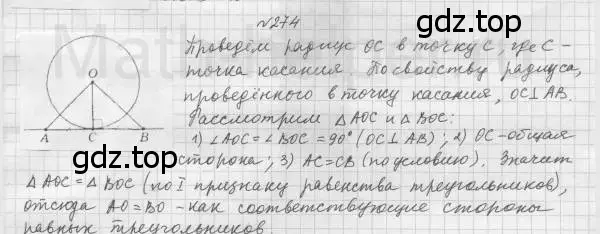 №274
Проведём радиус OC в точку C, где C -
точка касания. По свойству радиуса,
проведённого в точку касания, OC⊥AB.
Рассмотрим △AOC и △BOC:
1) ∠AOC = ∠BOC = 90° (OC⊥AB); 2) OC - общая
сторона; 3) AC = CB (по условию). Значит
△AOC = △BOC (по I признаку равенства треугольников),
отсюда AO = BO - как соответствующие стороны
равных треугольников.
O
A C B
gdz.top
gdz.top
gdz.top
gdz.top